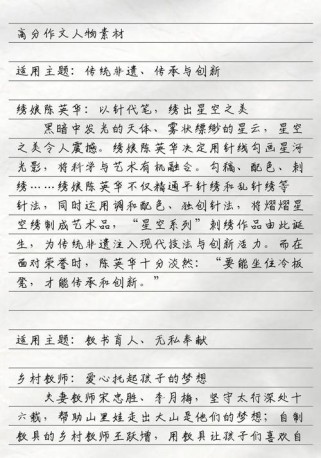 高分作文人物素材
适用主题：传统非遗、传承与创新
绣娘陈英华：以针代笔，绣出星空之美
黑暗中发光的天体、雾状缥缈的星云，星空
之美令人震撼。绣娘陈英华决定用针线勾画星河
光影，将科学与艺术有机融合。勾稿、配色、刺
绣……绣娘陈英华不仅精通平针绣和乱针绣等
针法，同时运用调和配色、独创针法，将熠熠星
空绣制成艺术品，“星空系列”刺绣作品由此诞
生，为传统非遗注入现代技法与创新活力。而在
面对荣誉时，陈英华十分淡然：“要能坐住冷板
凳，才能传承和创新。”
适用主题：教书育人、无私奉献
乡村教师：爱心托起孩子的梦想
夫妻教师宋忠胜、李月梅，坚守太行深处十
六载，帮助山里娃走出大山是他们的梦想；自制
教具的乡村教师王跃增，用教具让孩子们喜欢自